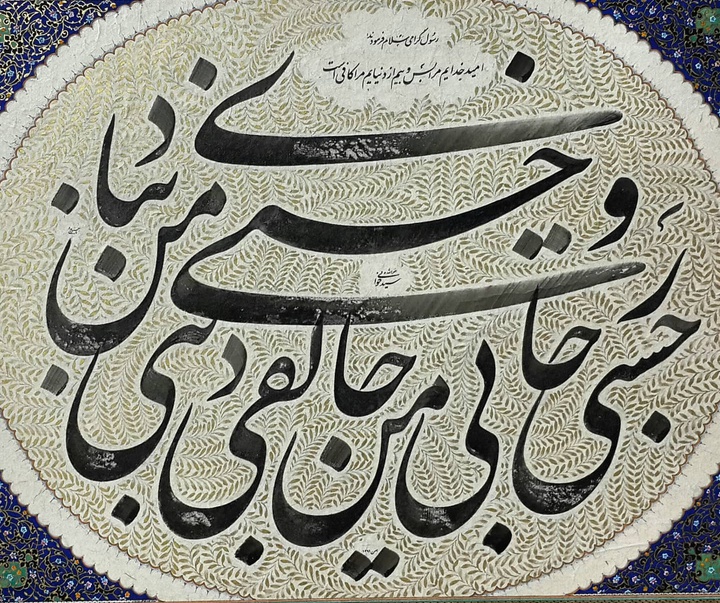 رسول گرامی اسلام فرمودند:
امید خدایم مرا بس و بیم از دنیایم مرا کافی است
حسبی رجایی من خالقی
و حسبی دینی من دنیای